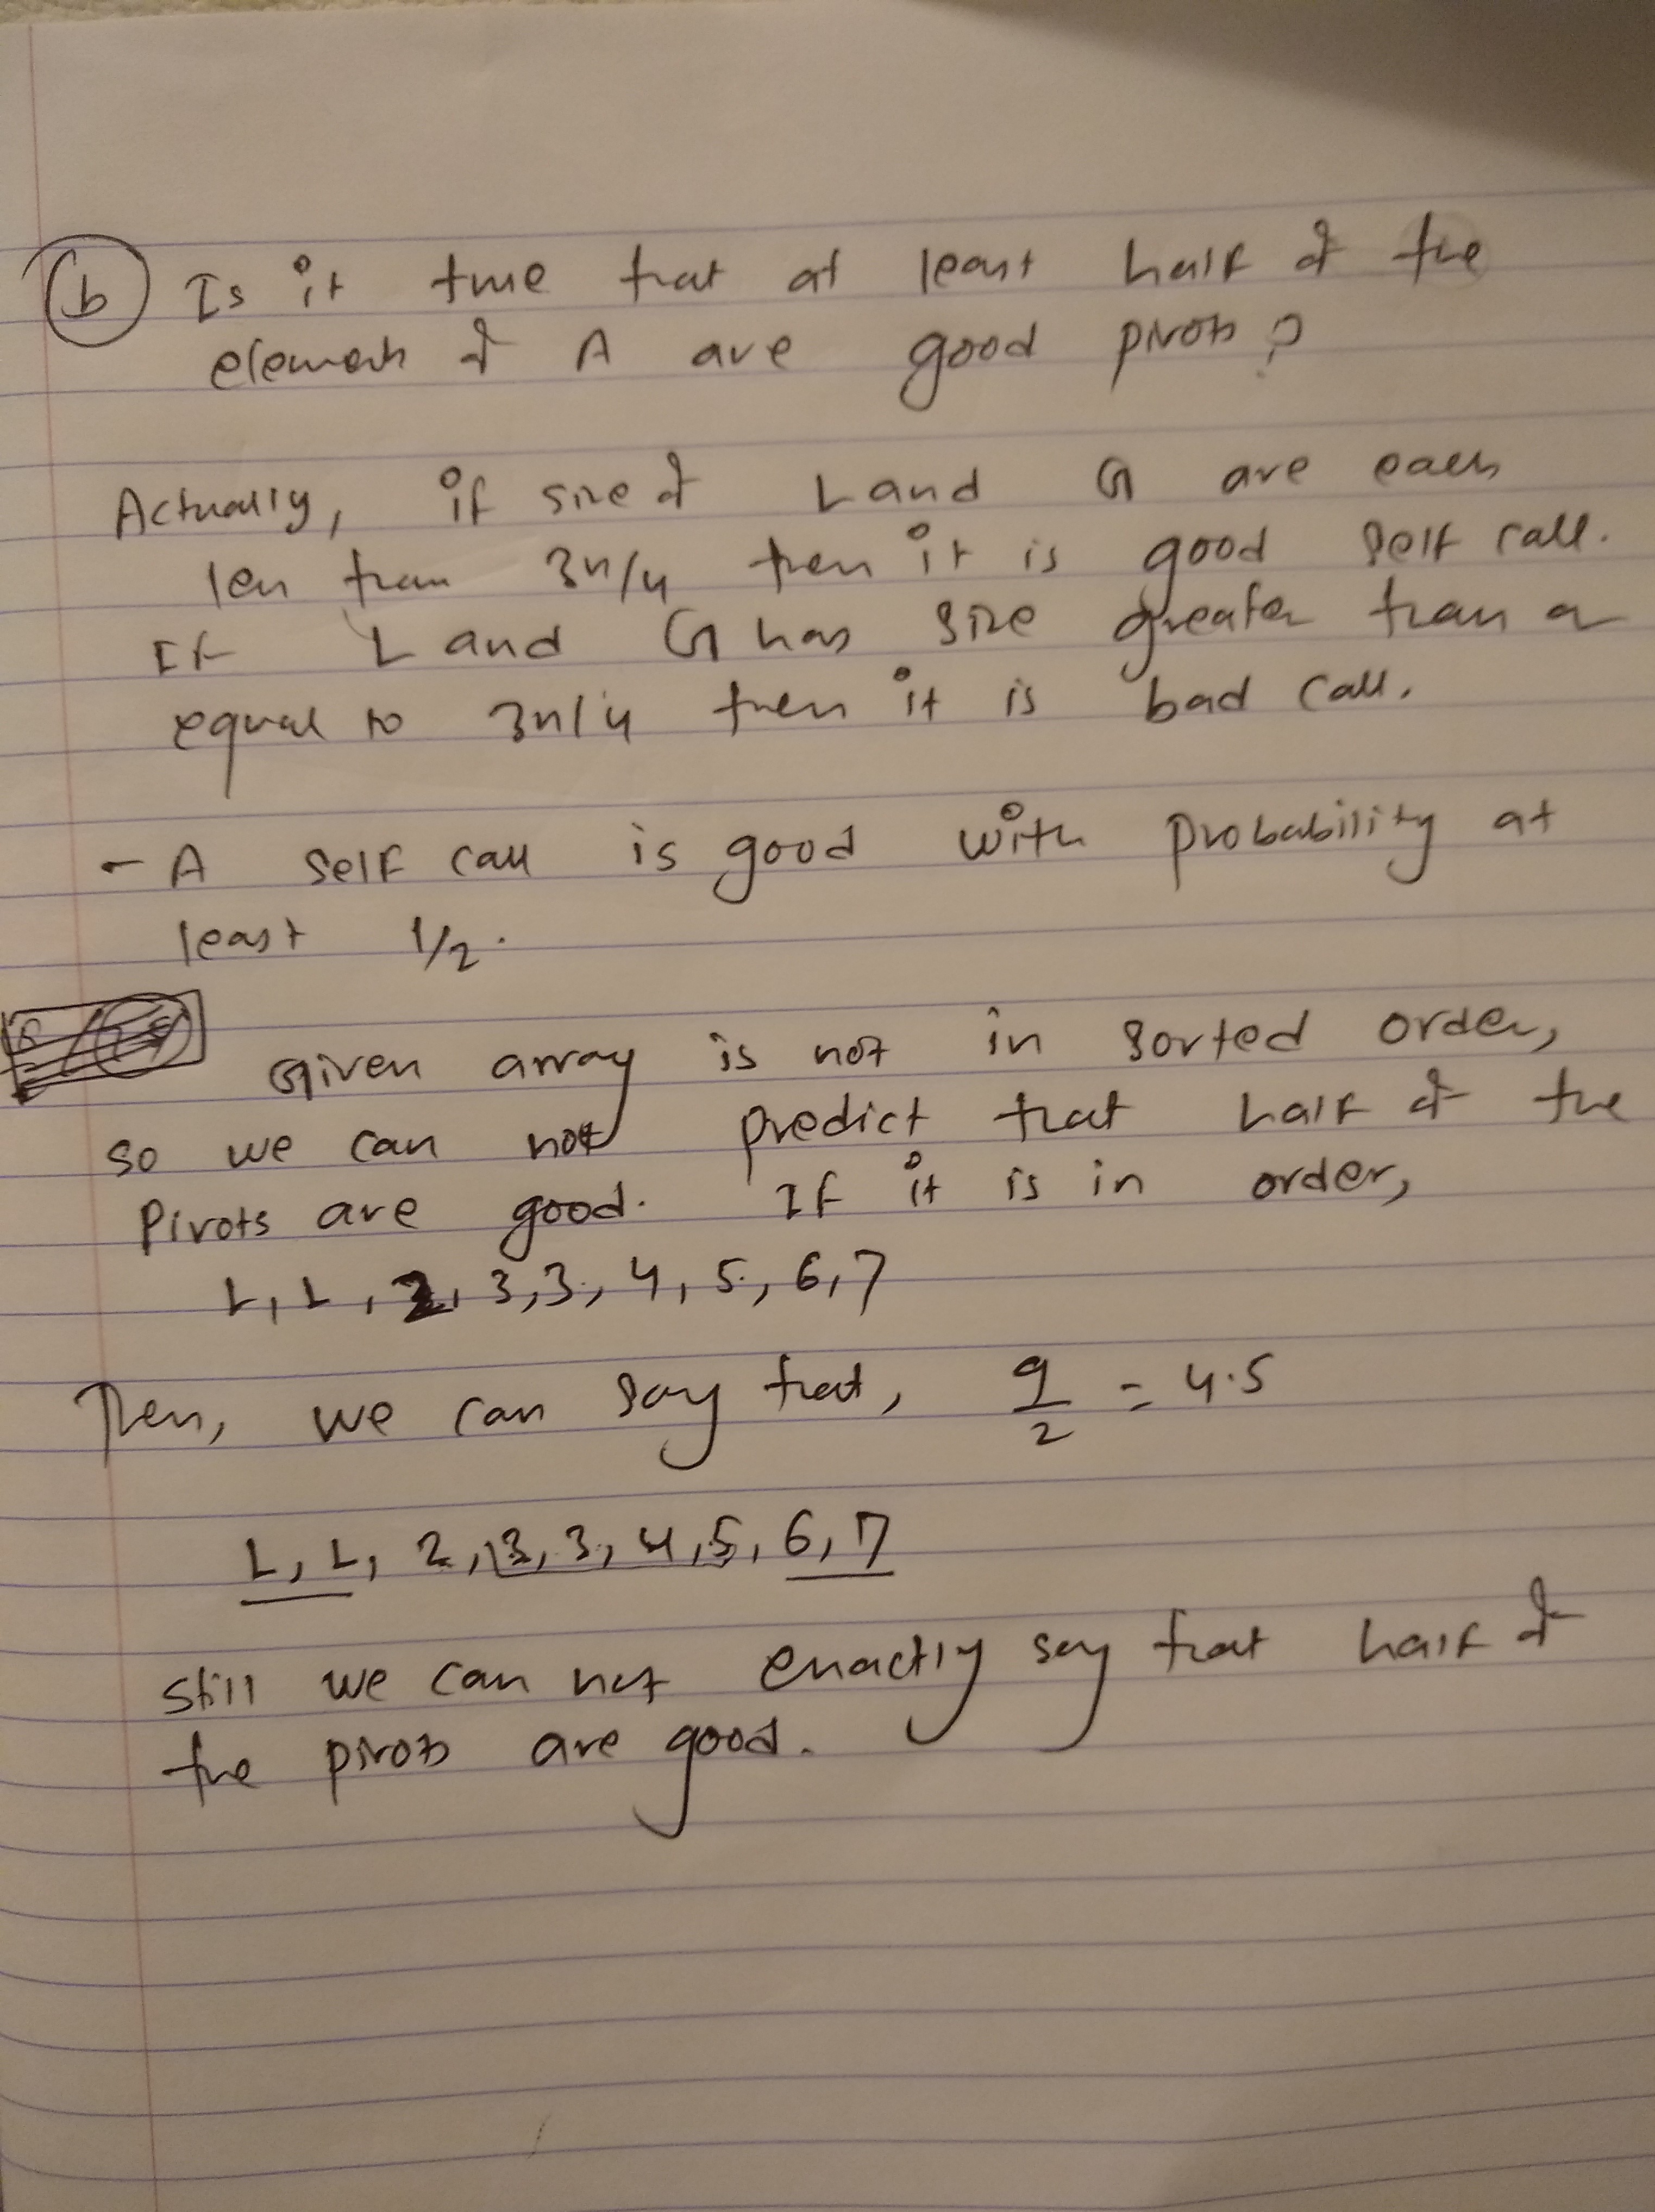 (b) Is it true that at least half of the
elements of A are good pivots?
Actually, if size of L and G are each
less than 3n/4 then it is good self call.
If L and G has size greater than or
equal to 3n/4 then it is bad call.
- A self call is good with probability at
least 1/2.
Given array is not in sorted order,
so we can not predict that half of the
pivots are good. If it is in order,
1, 1, 2, 3, 3, 4, 5, 6, 7
Then, we can say that, 9/2 = 4.5
1, 1, 2, 3, 3, 4, 5, 6, 7
still we can not exactly say that half of
the pivots are good.